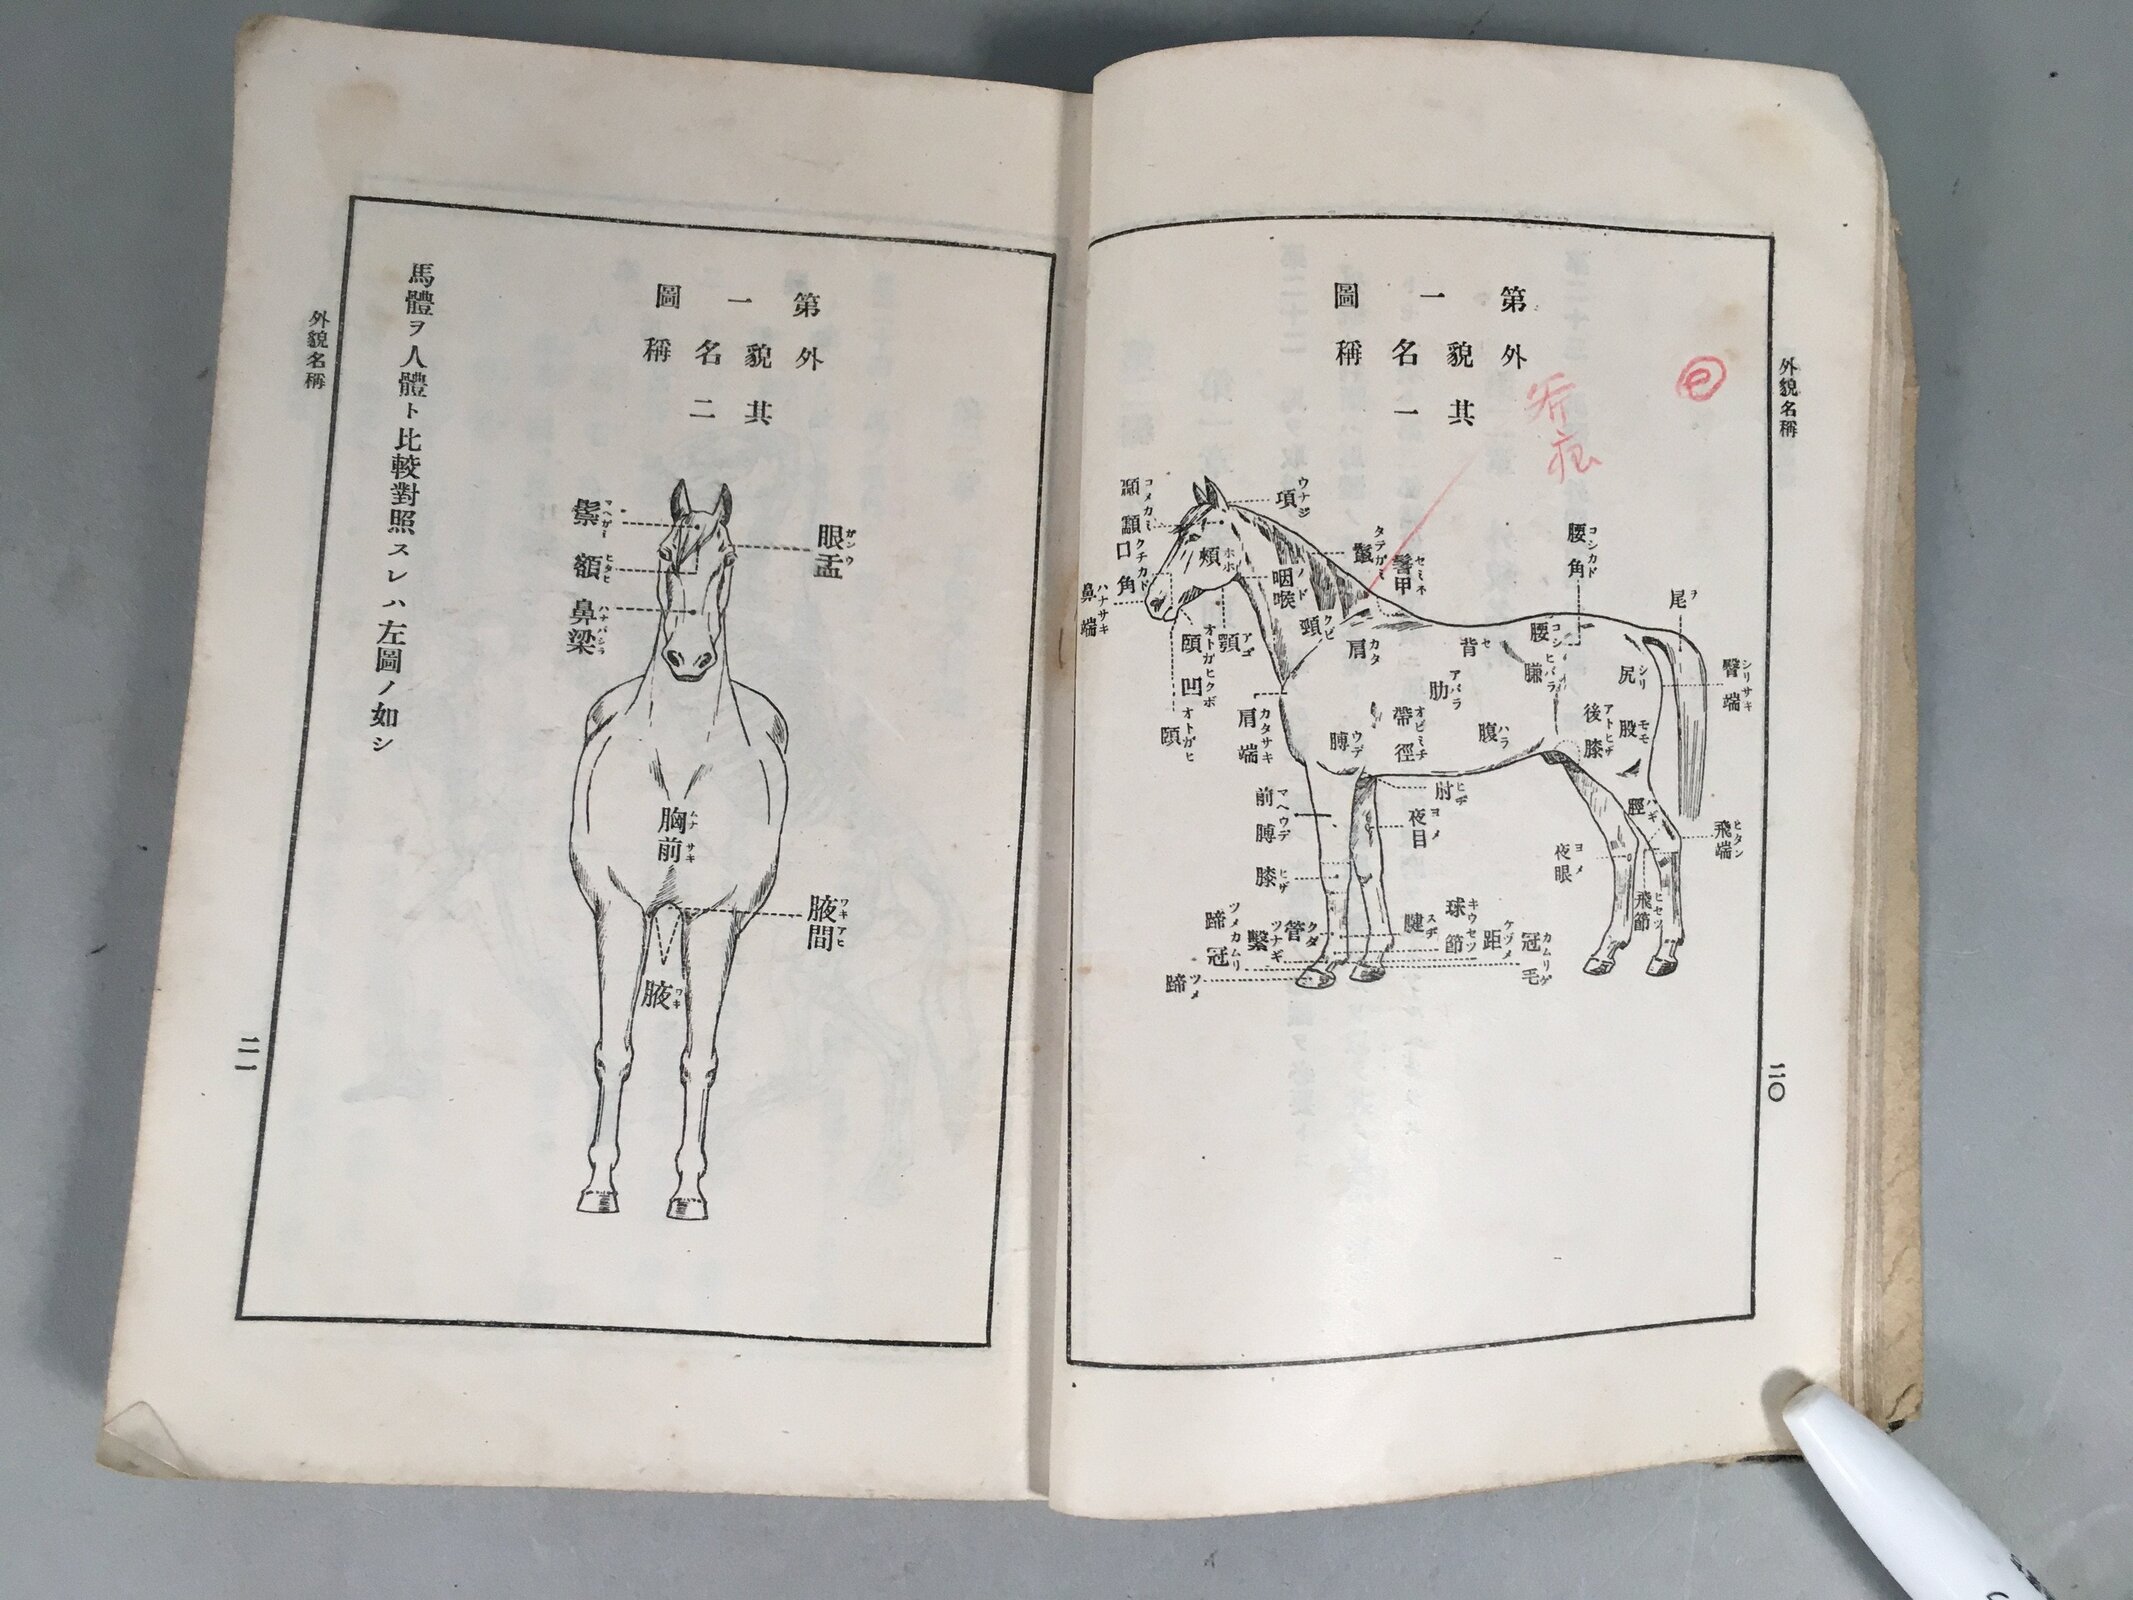 外貌名稱
二〇
第一圖
外貌名稱
其一
疥癬
項 ウナジ
顳顬 コメカミ
口角 クチカド
鼻端 ハナサキ
頰 ホホ
咽喉 ノド
頸 クビ
鬣 タテガミ
鬐甲 セミネ
腰角 コシカド
尾 ヲ
臀端 シリサキ
頤凹 オトガヒクボ
顎 アゴ
頤 オトガヒ
肩 カタ
背 セ
腰 コシ
肋 アバラ
膁 ヒバラ
尻 シリ
肩端 カタサキ
膊 ウデ
帶徑 オビミチ
腹 ハラ
後膝 アトヒザ
股 モモ
前膊 マヘウデ
肘 ヒヂ
夜目 ヨメ
脛 ハギ
飛端 ヒタン
夜眼 ヨメ
飛節 ヒセツ
膝 ヒザ
蹄冠 ツメカムリ
繫 ツナギ
管 クダ
腱 スヂ
球節 キウセツ
距 ケヅメ
冠毛 カムリゲ
蹄 ツメ
第一圖
外貌名稱
其二
眼盂 ガンウ
額 ヒタヒ
鼻梁 ハナバシラ
胸前 ムナサキ
腋間 ワキアヒ
腋 ワキ
馬體ヲ人體ト比較對照スレハ左圖ノ如シ
外貌名稱
二一